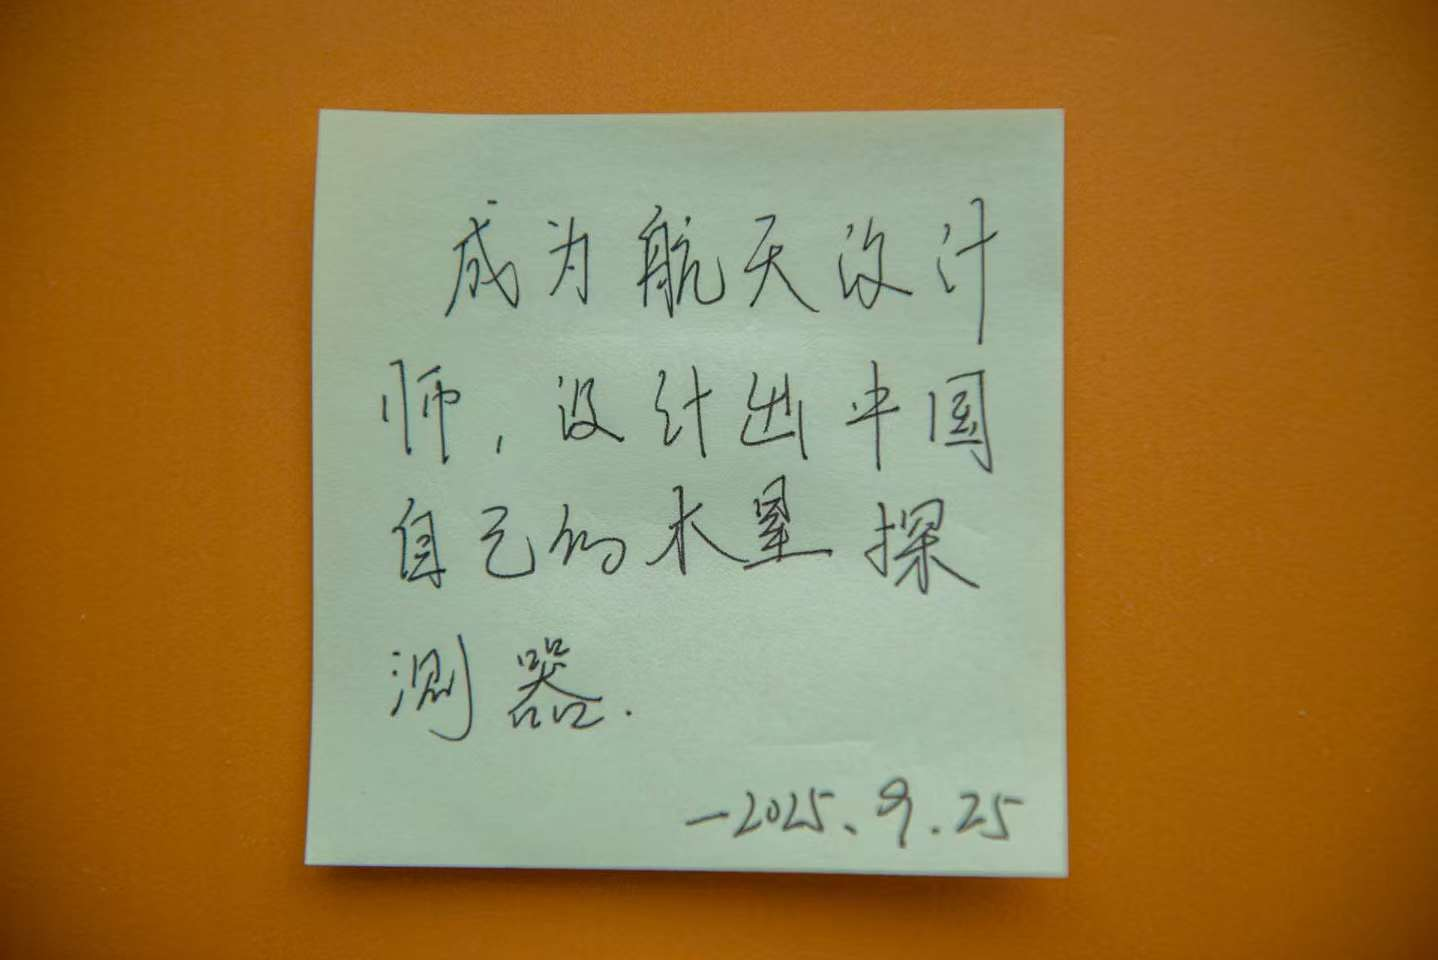 成为航天设计
师,设计出中国
自己的木星探
测器.
—2025、9.25